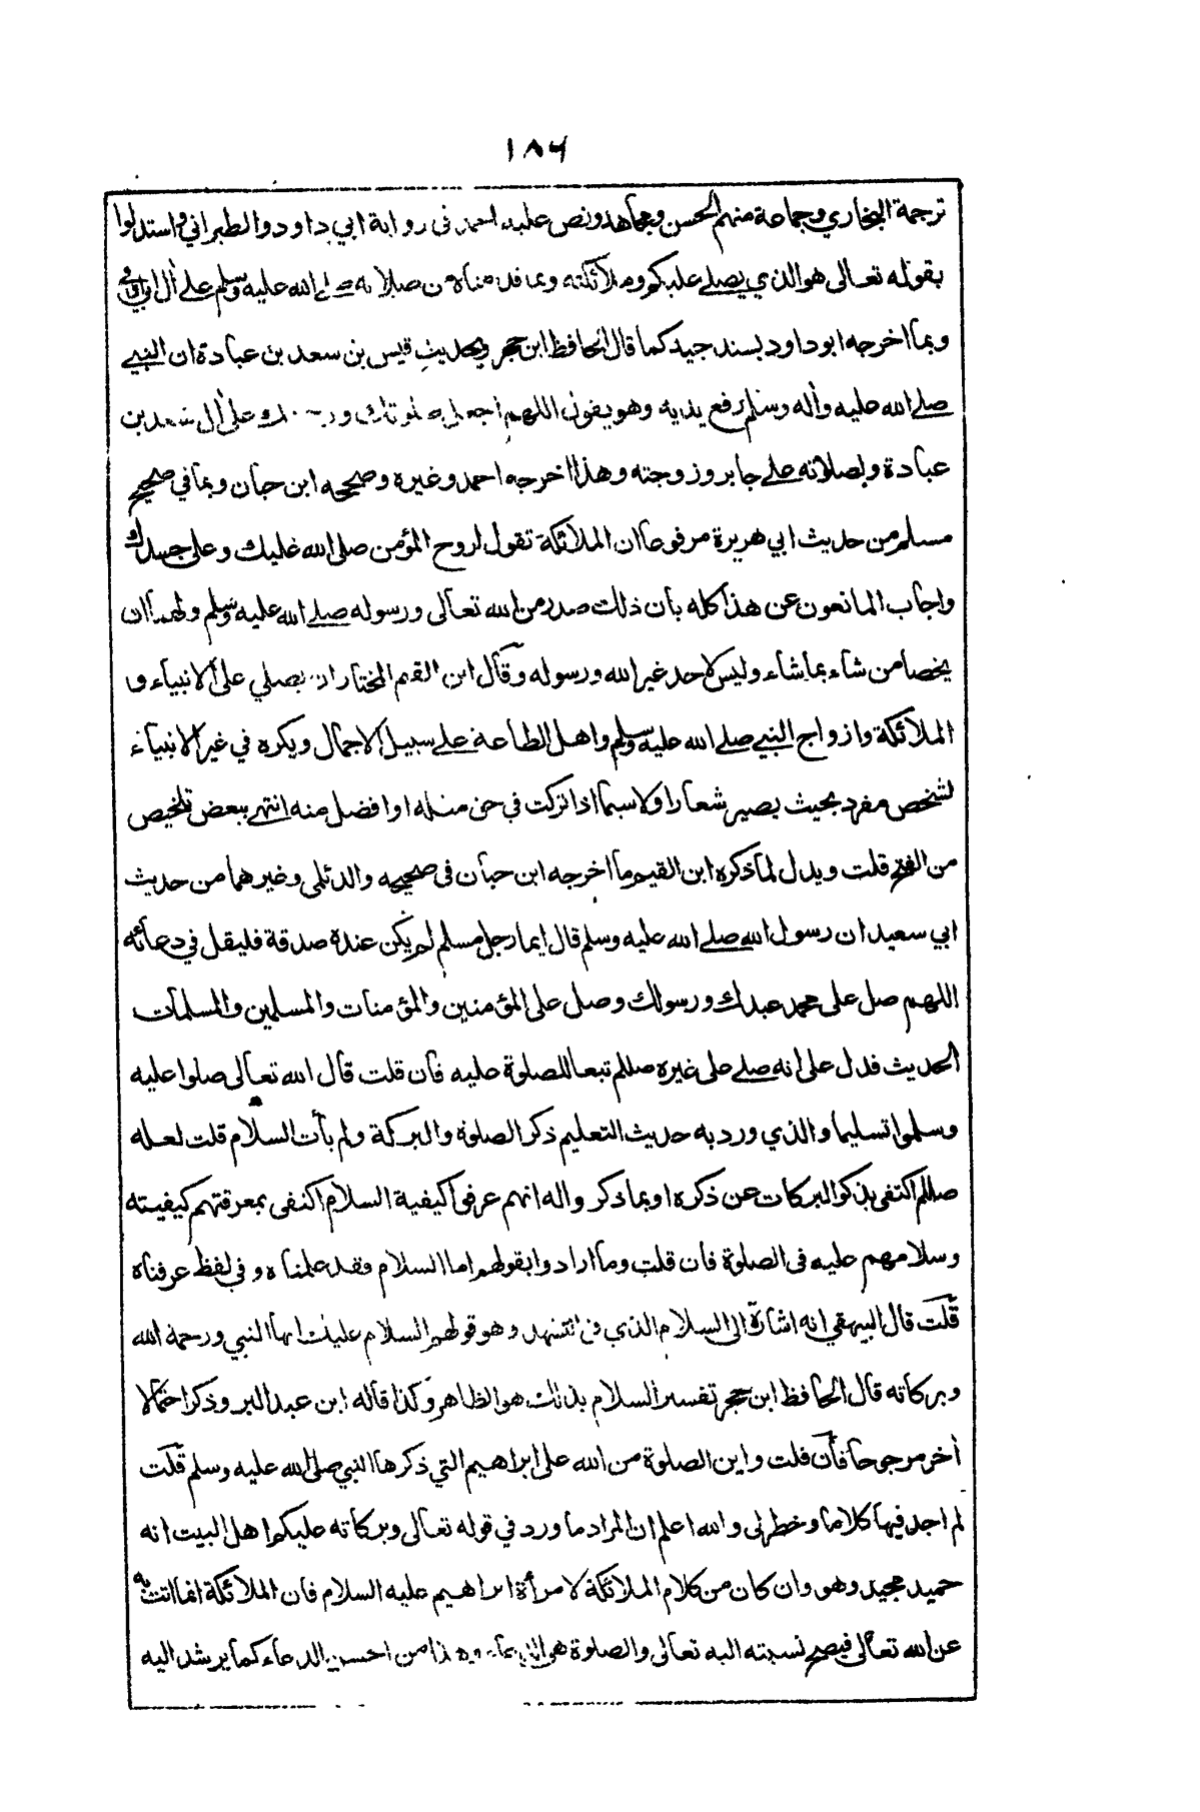 ١٨٦
ترجمة البخاري وجماعة منهم الحسن ومجاهد ونص عليه احمد فى رواية ابي داود والطبراني واستدلوا
بقوله تعالى هو الذي يصلے عليكم وملائكته وبما قدمناه من صلاته صلے الله عليه وسلم على أل ابي اوفى
وبما اخرجه ابو داود بسند جيد كما قال الحافظ ابن حجر وبحديث قيس بن سعد بن عبادة ان النبي
صلے الله عليه وأله وسلم رفع يديه وهو يقول اللهم اجعل صلوتك ورحمتك على أل سعد بن
عبادة وبصلاته على جابر وزوجته وهذا اخرجه احمد وغيره وصححه ابن حبان وبما في صحيح
مسلم من حديث ابي هريرة مرفوعا ان الملائكة تقول لروح المؤمن صلى الله عليك وعلى جسدك
واجاب المانعون عن هذا كله بان ذلك صدر من الله تعالى ورسوله صلے الله عليه وسلم ولهما ان
يخصا من شاء بما شاء وليس لاحد غير الله ورسوله وقال ابن القيم المختار ان يصلي على الانبياء و
الملائكة وازواج النبي صلے الله عليه وسلم واهل الطاعة على سبيل الاجمال ويكره في غير الانبياء
لشخص مفرد بحيث يصير شعارا ولا سيما اذا تركت في حق مثله او افضل منه انتهے ببعض تلخيص
من الفتح قلت ويدل لما ذكره ابن القيم ما اخرجه ابن حبان فى صحيحه والدئلى وغيرهما من حديث
ابي سعيد ان رسول الله صلے الله عليه وسلم قال ايما رجل مسلم لم يكن عنده صدقة فليقل في دعائه
اللهم صل على محمد عبدك ورسولك وصل على المؤمنين والمؤمنات والمسلمين والمسلمات
الحديث فدل على انه صلے على غيره صللم تبعا للصلوة عليه فان قلت قال الله تعالى صلوا عليه
وسلموا تسليما والذي ورد به حديث التعليم ذكر الصلوة والبركة ولم يأت السلام قلت لعله
صللم اكتفى بذكر البركات عن ذكره او بما ذكر واله انهم عرفوا كيفية السلام اكتفى بمعرفتهم كيفيته
وسلامهم عليه فى الصلوة فان قلت وما ارادوا بقولهم اما السلام فقد علمناه وفي لفظ عرفناه
قلت قال البيهقي انه اشارة الى السلام الذي فى التشهد وهو قولهم السلام عليك ايها النبي ورحمة الله
وبركاته قال الحافظ ابن حجر تفسير السلام بذلك هو الظاهر وكذا قاله ابن عبد البر وذكر احتمالا
أخر مرجوحا فأن قلت واين الصلوة من الله على ابراهيم التي ذكرها النبي صلى الله عليه وسلم قلت
لم اجد فيها كلاما وخطر لى والله اعلم ان المراد ما ورد في قوله تعالى وبركاته عليكم اهل البيت انه
حميد مجيد وهو وان كان من كلام الملائكة لامرأة ابراهيم عليه السلام فان الملائكة انما اتت به
عن الله تعالى فيصح نسبته اليه تعالى والصلوة هي الدعاء وهذا من احسن الدعاء كما يرشد اليه